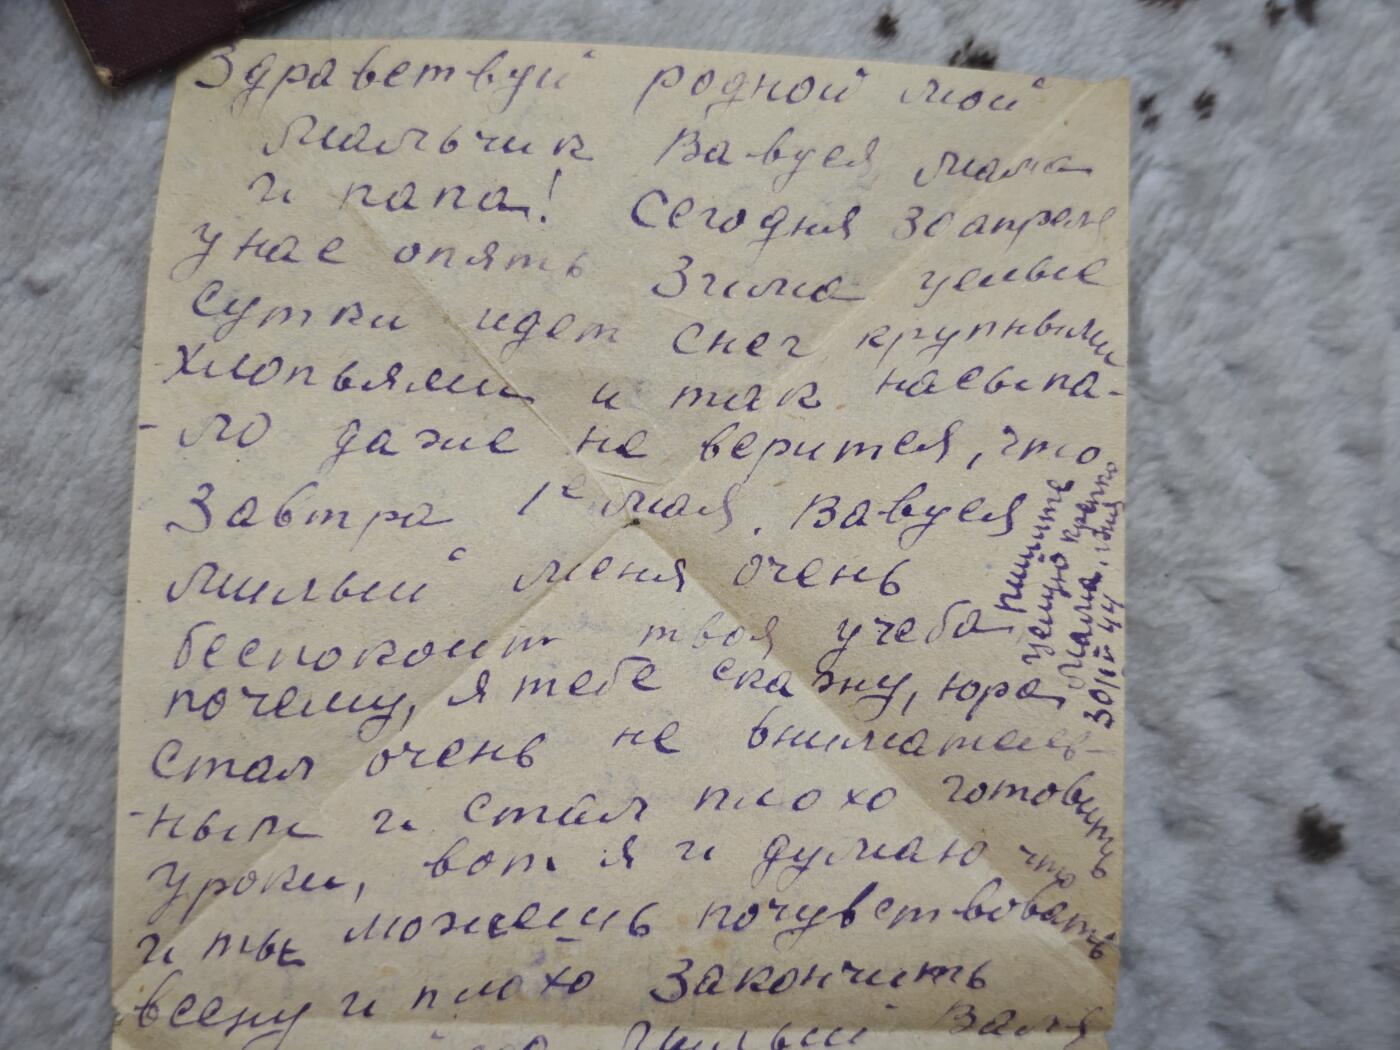 Здравствуй родной мой
мальчик Вавуся мама
и папа! Сегодня 30 апреля
у нас опять Зима целые
сутки идет снег крупными
хлопьями и так насыпа-
-ло даже не верится, что
Завтра 1е мая. Вавуся
милый меня очень
беспокоит твоя учеба
почему, я тебе скажу, юра
стал очень не вниматель-
-ным и стал плохо готовить
уроки, вот я и думаю что
и ты можешь почувствовать
весну и плохо Закончить
милый Валя
пишите
целую крепко
мама.
30/IV 44